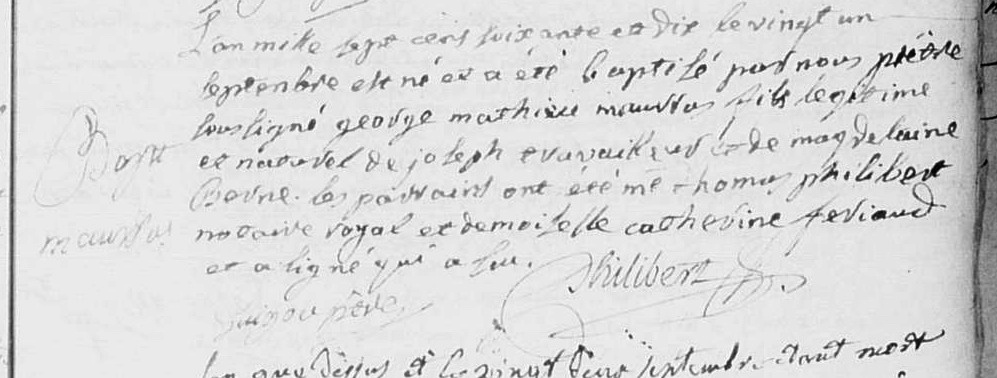 L'an mille sept cens soixante et dix le vingt un
septembre est né et a été baptisé par nous prêtre
soussigné george mathieu maurras fils légitime
et naturel de joseph travailleur et de magdelaine
Berne. les parrains ont été me thomas philibert
notaire royal et demoiselle catherine feriaud
et a signé qui a su. Philibert
Bapt
maurras
l'an que dessus et le vingt deux septembre étant mort